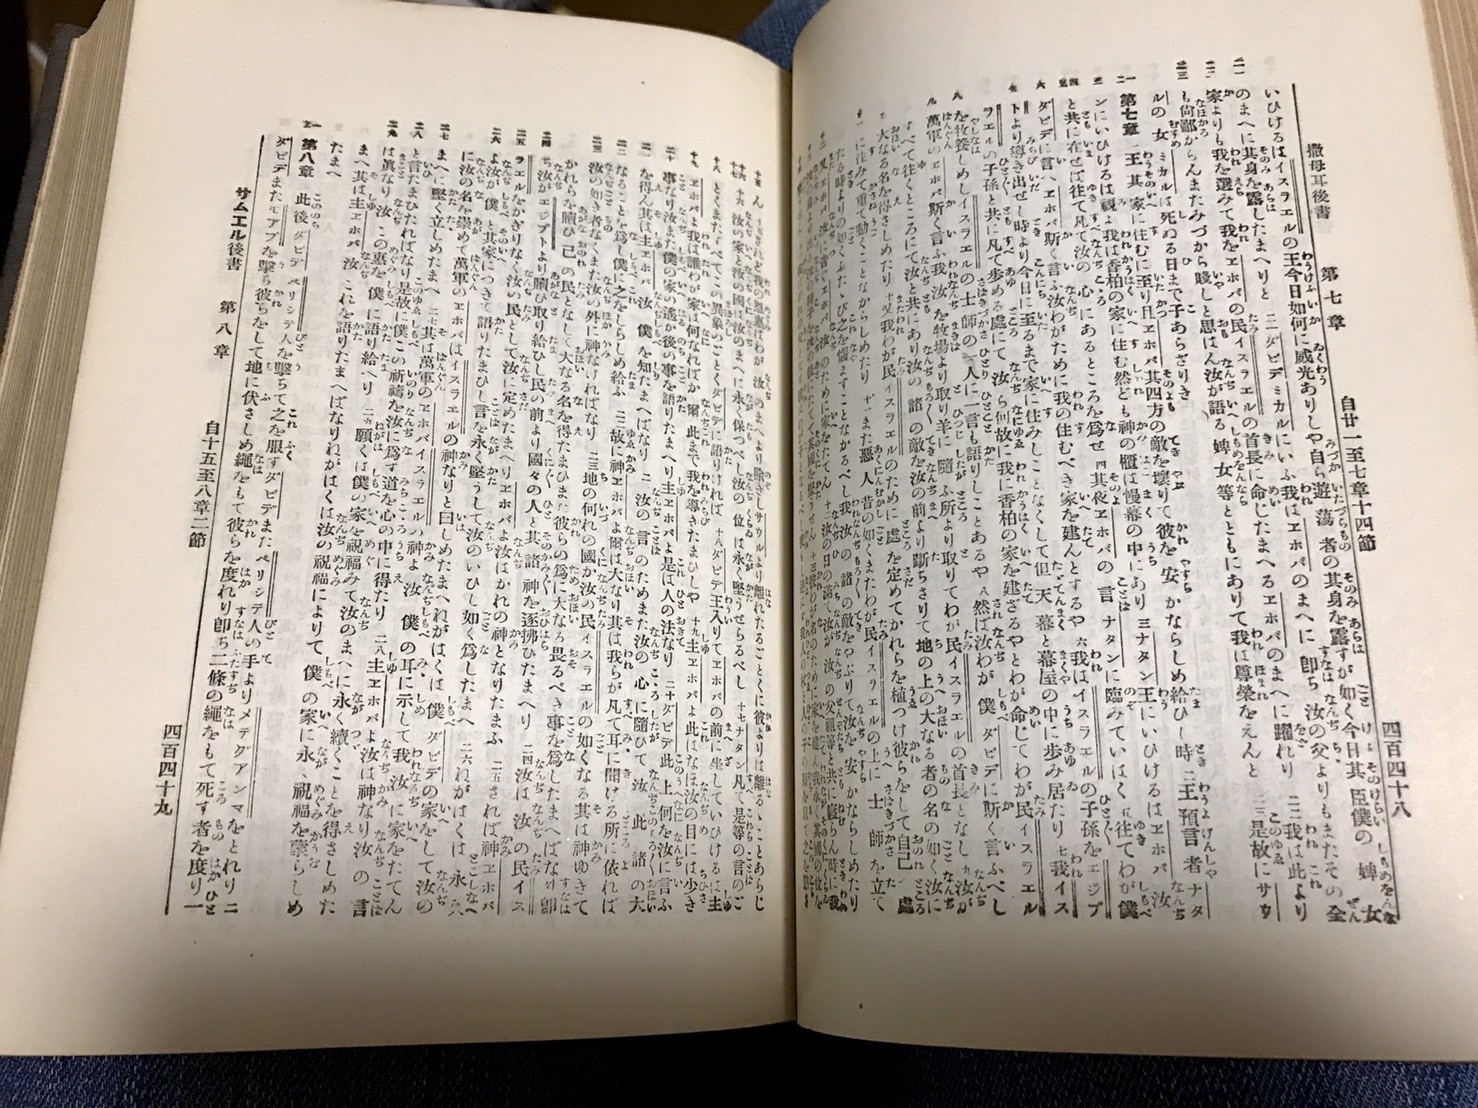 撒母耳後書 第七章 自廿一至七章十四節 四百四十八
いひけるはイスラエルの王今日如何に威光ありしや自ら遊蕩者の其身を露すが如く今日其臣僕の婢女
のまへに其身を露したまへりと 二一ダビデミカルにいふ我はヱホバのまへに即ち汝の父よりもまたその全
家よりも我を選みて我をヱホバの民イスラエルの首長に命じたまへるヱホバのまへに躍れり 二二我は此より
も尚鄙からんまたみづから賤しと思はん汝が語る婢女等とともにありて我は尊榮をえんと 二三是故にサウ
ルの女ミカルは死ぬる日まで子あらざりき
第七章 一王其家に住むに至り且ヱホバ其四方の敵を壞りて彼を安かならしめ給ひし時 二王預言者ナタ
ンにいひけるは視よ我は香柏の家に住む然ども神の匱は幔幕の中にあり 三ナタン王にいひけるはヱホバ汝
と共に在せば往て凡て汝の心にあるところを爲せ 四其夜ヱホバの言ナタンに臨みていはく 五往てわが僕
ダビデに言へヱホバ斯く言ふ汝わがために我の住むべき家を建んとするや 六我はイスラエルの子孫をエジプ
トより導き出せし時より今日に至るまで家に住みしことなくして但天幕と幕屋の中に歩み居たり 七我イス
ラエルの子孫と共に凡て歩める處にて汝ら何故に我に香柏の家を建ざるやとわが命じてわが民イスラエル
を牧養しめしイスラエルの士師の一人に一言も語りしことあるや 八然ば汝わが僕ダビデに斯く言ふべし
萬軍のヱホバ斯く言ふ我汝を牧場より取り羊に隨ふ所より取りてわが民イスラエルの首長となし 九汝が
すべて往くところにて汝と共にあり汝の諸の敵を汝の前より斷ちさりて地の上の大なる者の名の如く汝に
大なる名を得さしめたり 十又我わが民イスラエルのために處を定めてかれらを植つけ彼らをして自己の處
に住みて重て動くことなからしめたり 十一また惡人昔の如くまたわが民イスラエルの上に士師を立て
たる時よりの如くふたゝび之を惱ますことなかるべし我汝の諸の敵をやぶりて汝を安かならしめたり
又ヱホバ汝に ヱホバ汝のために家をたてん 十二汝の日の滿て汝が汝の父祖等と共に寢らん時に我
されど我の恩惠はわが汝のまへより除きしサウルより離れたるごとくに彼よりは離るゝことあらじ
十六汝の家と汝の國は汝のまへに永く保つべし汝の位は永く堅うせらるべし 十七ナタン凡て是等の言のご
とくまたすべてこの異象のごとくダビデに語りければ 十八ダビデ王入りてヱホバの前に坐していひけるは主
ヱホバよ我は誰わが家は何なればか爾此まで我を導きたまひしや 十九主ヱホバよ此はなほ汝の目には小き
事なり汝また僕の家の遙か後の事を語りたまへり主ヱホバよ是は人の法なり 二十ダビデ此上何を汝に言ふ
を得ん其は主ヱホバ汝僕を知たまへばなり 二一汝の言のためまた汝の心に隨ひて汝此諸の大
なることを爲し僕に之をしらしめ給ふ 二二故に神ヱホバよ爾は大なり其は我らが凡て耳に聞ける所に依れば
汝の如き者なくまた汝の外に神なければなり 二三地の何れの國か汝の民イスラエルの如くなる其は神ゆきて
かれらを贖ひ己の民となして大なる名を得たまひまた彼らの爲に大なる畏るべき事を爲したまへばなり即
ち汝がエジプトより贖ひ取り給ひし民の前より國々の人と其諸神を逐拂ひたまへり 二四汝は汝の民イス
ラエルをかぎりなく汝の民として汝に定めたまへりヱホバよ汝はかれの神となりたまふ 二五されば神ヱホバ
よ汝が僕と其家につきて語りたまひし言を永く堅うして汝のいひし如く爲したまへ 二六ねがはくは永久
に汝の名を崇めて萬軍のヱホバはイスラエルの神なりと曰しめたまへねがはくは僕ダビデの家をして汝の
まへに堅く立しめたまへ 二七其は萬軍のヱホバイスラエルの神よ汝僕の耳に示して我汝に家をたてん
と言たまひたればなり是故に僕この祈禱を汝に爲す道を心の中に得たり 二八主ヱホバよ汝は神なり汝の言
は眞なり汝この惠を僕に語り給へり 二九願くは僕の家を祝福みて汝のまへに永く續くことを得さしめた
まへ其は主ヱホバ汝これを語りたまへばなりねがはくは汝の祝福によりて僕の家に永く祝福を蒙らしめ
たまへ
第八章 一此後ダビデペリシテ人を擊ちて之を服すダビデまたペリシテ人の手よりメテグアンマをとれり 二
ダビデまたモアブを擊ち彼らをして地に伏さしめ繩をもて彼らを度れり即ち二條の繩をもて死す者を度り一
サムエル後書 第八章 自十五至八章二節 四百四十九